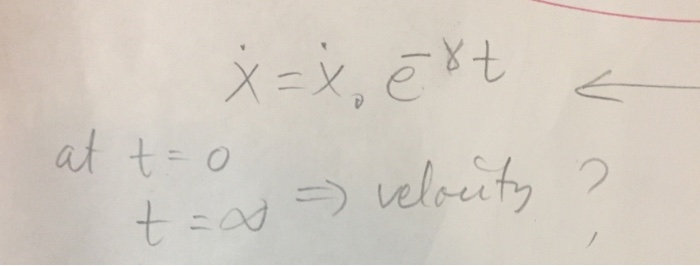 ẋ = ẋ₀ e^{-γt} ←
at t = 0
t = ∞ ⇒ velocity ?